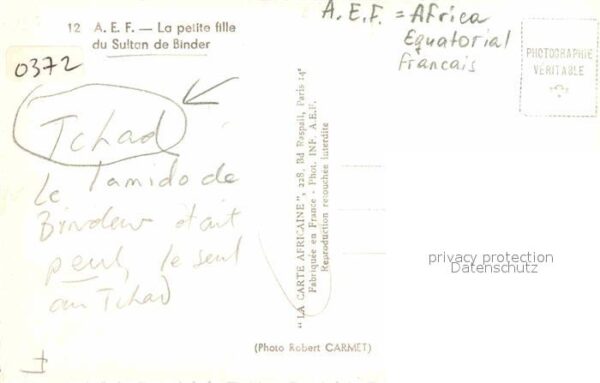 12 A. E. F. — La petite fille
du Sultan de Binder
0372
A.E.F. = Africa
Equatorial
francais
PHOTOGRAPHIE
VÉRITABLE
Tchad
Le lamido de
Binder était
peul, le seul
au Tchad
"LA CARTE AFRICAINE", 228, Bd Raspail, Paris 14e
Fabriquée en France - Phot. INF. A.E.F.
Reproduction retouchée interdite
privacy protection
Datenschutz
(Photo Robert CARMET)